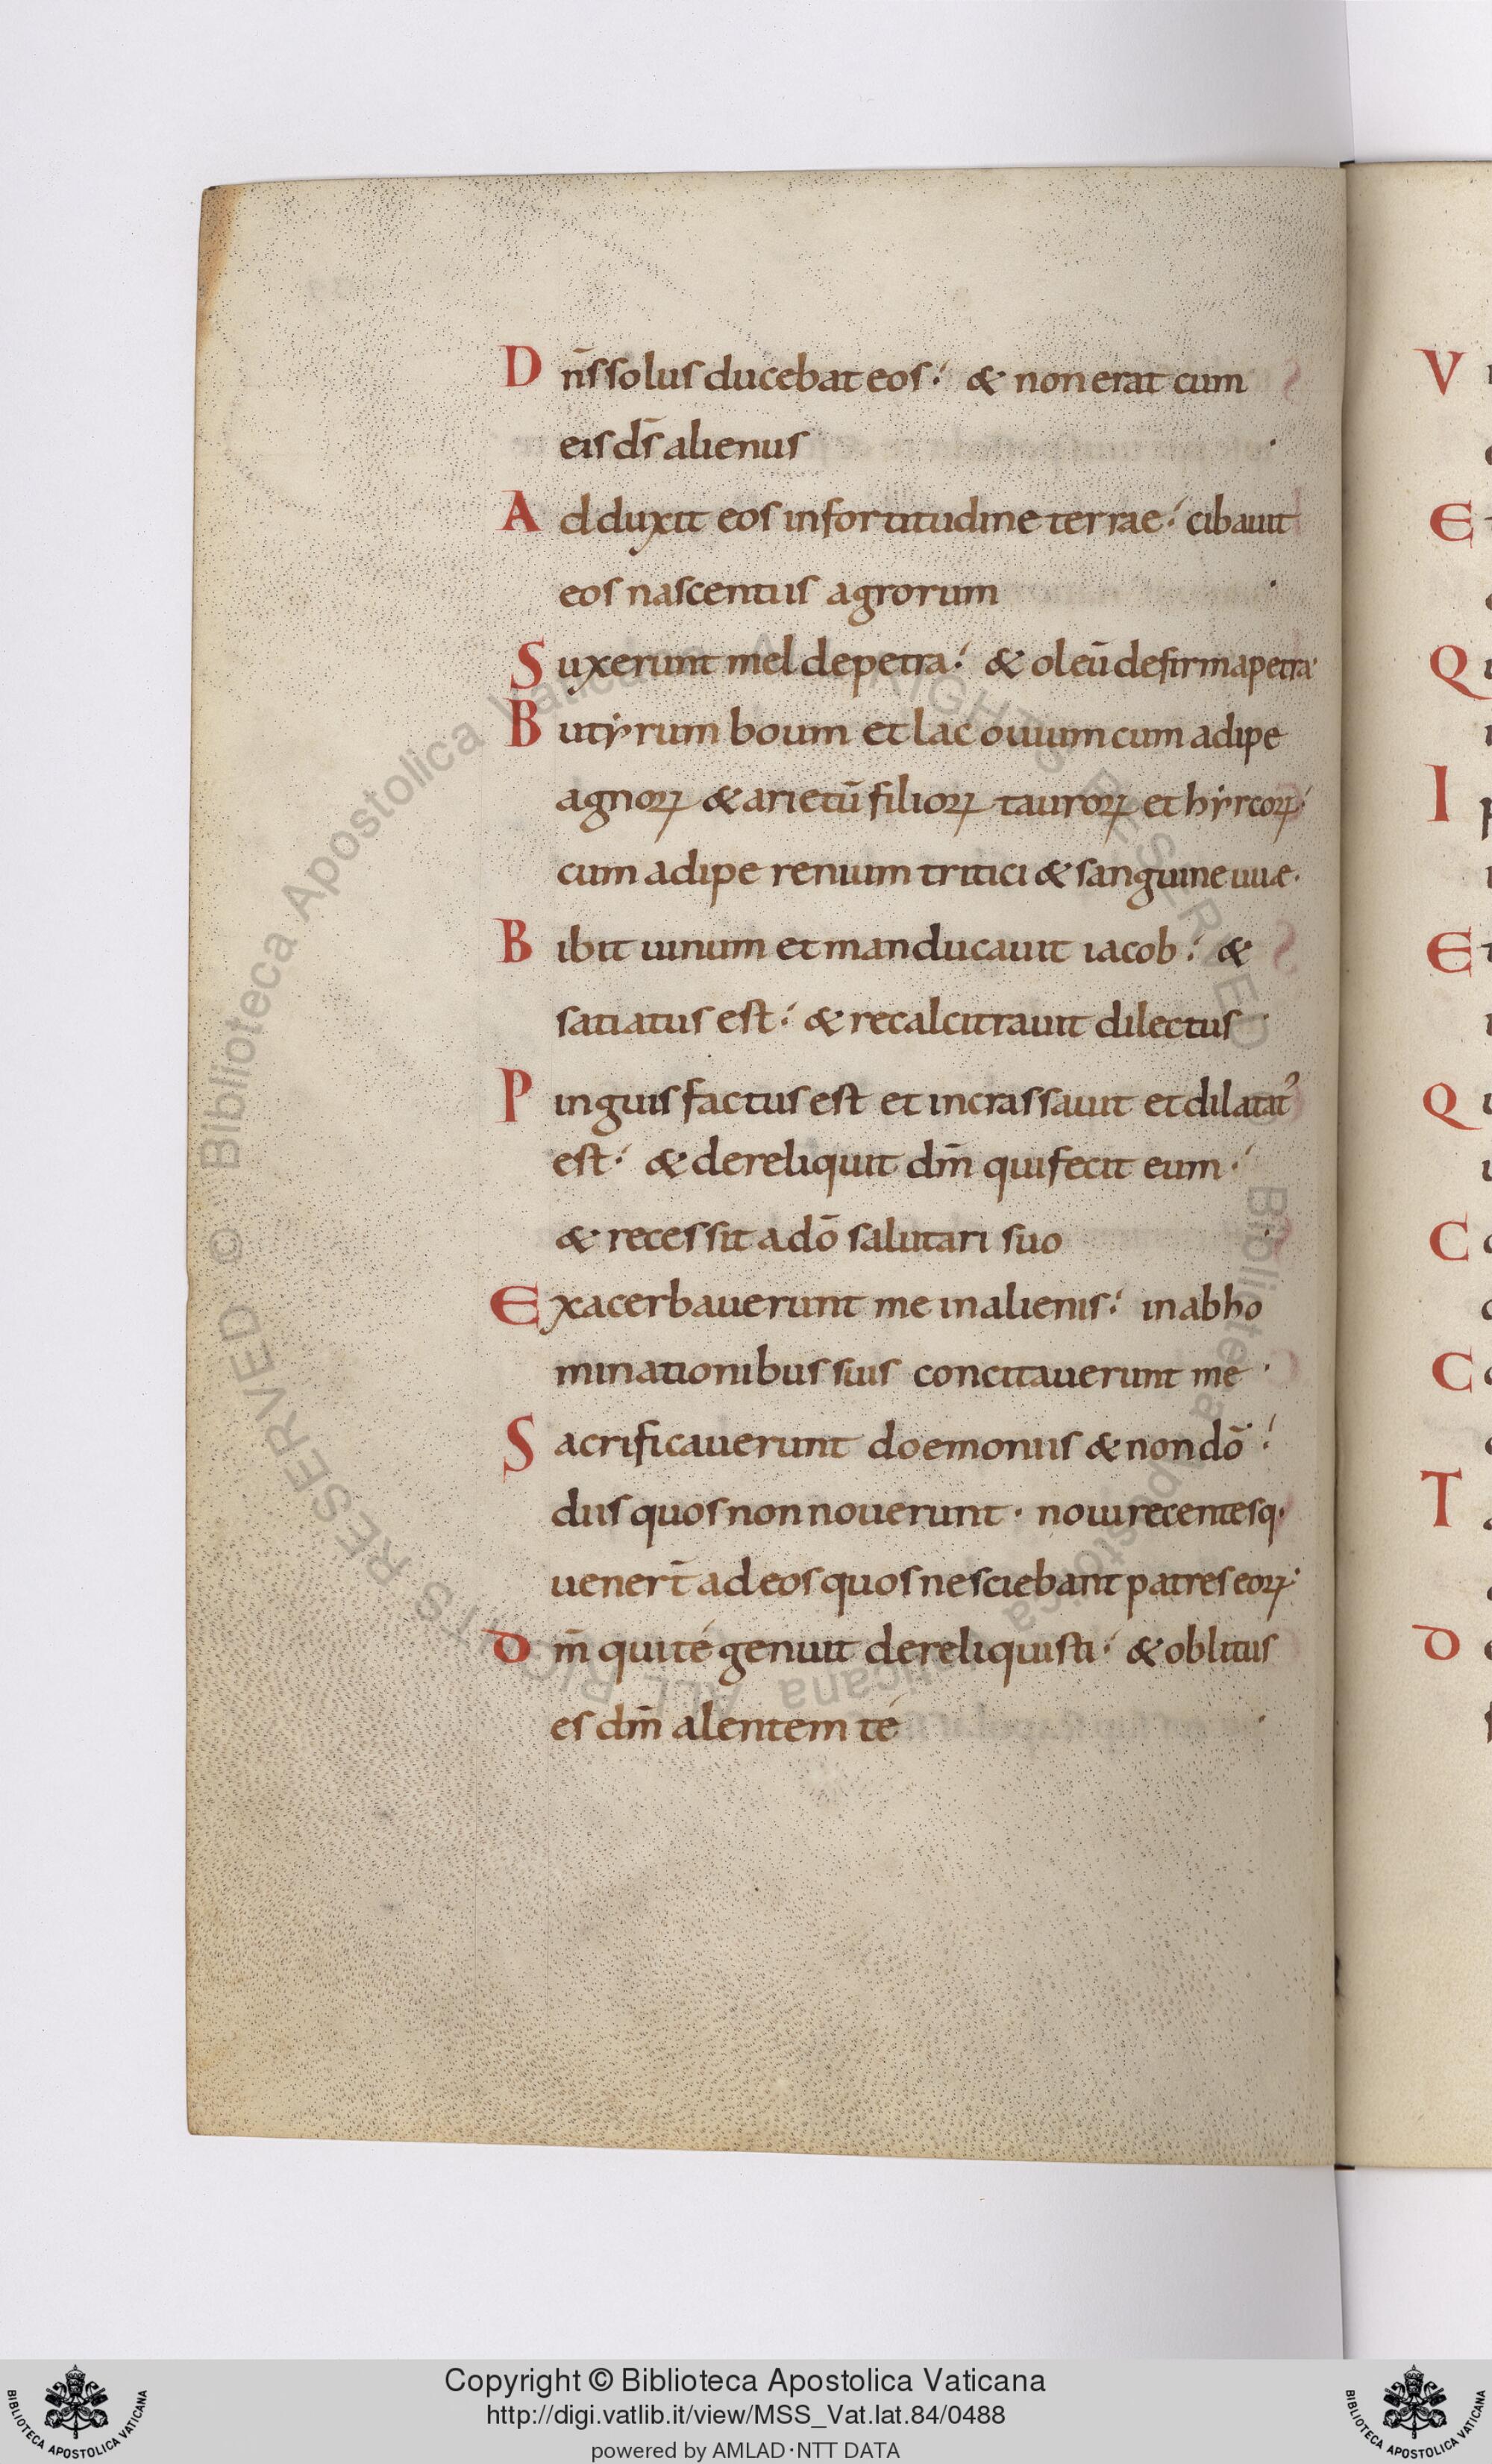 Dn̄s solus ducebat eos: & non erat cum
eis ds̄ alienus ·
Adduxit eos in fortitudine terrae: cibauit
eos nascentiis agrorum ·
Suxerunt mel de petra: & oleū de firma petra·
Butyrum boum et lac ouium cum adipe
agnorꝝ & arietū filiorꝝ taurorꝝ et hyrcorꝝ:
cum adipe renium tritici & sanguine uuæ·
Bibit uinum et manducauit iacob: &
satiatus est: & recalcitrauit dilectus ·
Pinguis factus est et incrassauit et dilatatꝰ
est: & dereliquit dm̄ qui fecit eum:
& recessit a dō salutari suo ·
Exacerbauerunt me in alienis: in abho
minationibus suis concitauerunt me ·
Sacrificauerunt doemoniis & non dō:
diis quos non nouerunt · noui recentesq·
uenert̄ ad eos quos nesciebant patres eorꝝ·
Dm̄ qui té genuit dereliquisti: & oblitus
es dm̄ alentem té ·
V
E
Q
I
E
Q
C
C
T
D
© Biblioteca Apostolica Vaticana ALL RIGHTS RESERVED
© Biblioteca Apostolica Vaticana ALL RIGHTS RESERVED
Copyright © Biblioteca Apostolica Vaticana
http://digi.vatlib.it/view/MSS_Vat.lat.84/0488
powered by AMLAD·NTT DATA
BIBLIOTECA APOSTOLICA VATICANA
BIBLIOTECA APOSTOLICA VATICANA